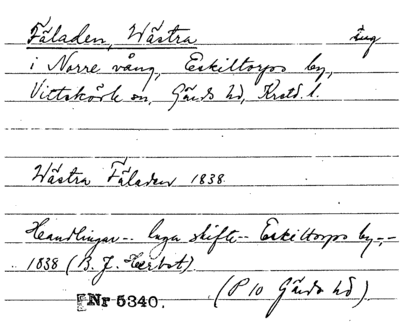 Fäladen, Västra äng
i Norre vång, Eskiltorps by,
Vittskövle sn, Gärds hd, Krstd. l.
Västra Fäladen 1838.
Handlingar -- laga skifte -- Eskiltorps by -,-
1838 (B. J. Herbst).
(P 10 Gärds hd)
Nr 5340.